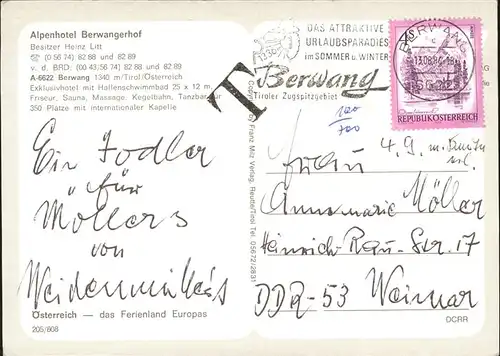 Alpenhotel Berwangerhof
Besitzer Heinz Litt
(0 56 74) 82 88 und 82 89
v. d. BRD: (00 43/56 74) 82 88 und 82 89
A-6622 Berwang 1340 m/Tirol/Österreich
Exklusivhotel mit Hallenschwimmbad 25 x 12 m.
Friseur, Sauna, Massage, Kegelbahn, Tanzbar für
350 Plätze mit internationaler Kapelle
Ein Jodler
für
Möllers
von
Weidenmüllers
Österreich — das Ferienland Europas
205/808
T
Franz Milz Verlag, Reutte/Tirol Tel. 05672/2831
DAS ATTRAKTIVE
URLAUBSPARADIES
im SOMMER u. WINTER
Berwang
Tiroler Zugspitzgebiet
BERWANG
13.08.84
REPUBLIK ÖSTERREICH
100
700
4. g. m.
Annemarie Möller
Heinrich Rau-Str. 17
DDR-53 Weimar
DCRR